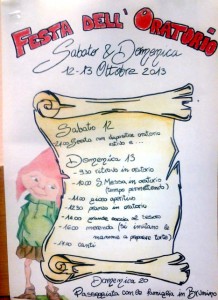 FESTA DELL'ORATORIO
Sabato & Domenica
12-13 Ottobre 2013
Sabato 12
Serata con
oratorio
Domenica 13
- 9.30 ritrovo in oratorio
- 10.00 S. Messa in oratorio
(tempo permettendo)
- 11.00 aperitivo
- 12.30 pranzo in oratorio
- 14.00 grande caccia al tesoro
- 16.00 merenda (si invitano le
mamme a preparare torte)
- 17.00 canti
Domenica 20
Passeggiata con le famiglie in